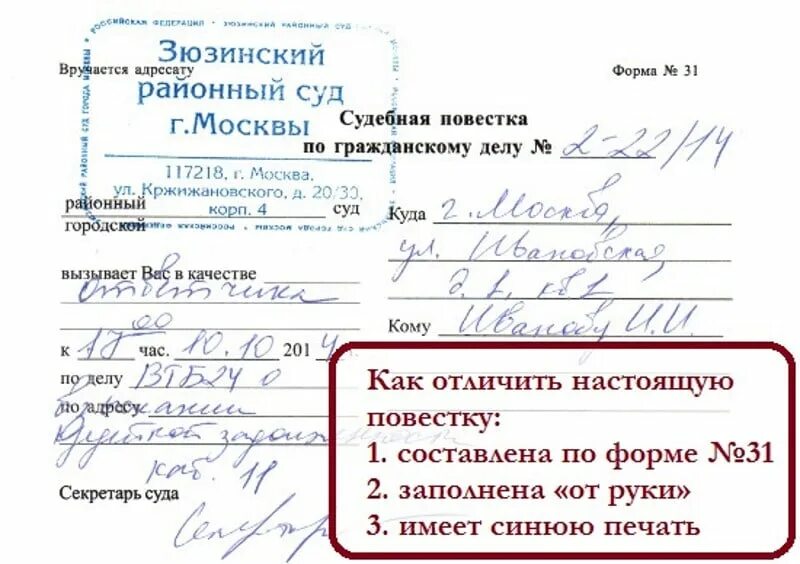 РОССИЙСКАЯ ФЕДЕРАЦИЯ · ЗЮЗИНСКИЙ РАЙОННЫЙ СУД
Зюзинский
районный суд
г.Москвы
117218, г. Москва,
ул. Кржижановского, д. 20/30,
корп. 4
Вручается адресату
Форма № 31
Судебная повестка
по гражданскому делу № 2-22/14
районный
городской суд
вызывает Вас в качестве
ответчика
к 17 00 час. 10.10 2014 г.
по делу ВТБ24 о
по адресу взыскании
кредитной задолженности
каб. 11
Секретарь суда
Куда г. Москва,
ул. Ивановская,
д. 1, кв 1
Кому Иванову И.И.
Как отличить настоящую
повестку:
1. составлена по форме №31
2. заполнена «от руки»
3. имеет синюю печать